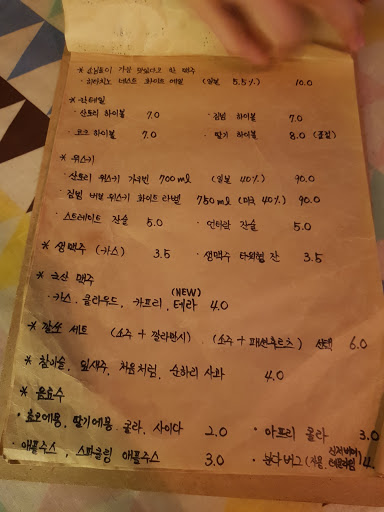 * 손님들이 가장 맛있다고 한 맥주
· 히타치노 네스트 화이트 에일 (일본 5.5%) 10.0
* 칵테일
· 산토리 하이볼 7.0 · 짐빔 하이볼 7.0
· 요크 하이볼 7.0 · 딸기 하이볼 8.0
* 위스키
· 산토리 위스키 가쿠빈 700ml (일본 40%) 90.0
· 짐빔 버번 위스키 화이트 라벨 750ml (미국 40%) 90.0
· 스트레이트 잔술 5.0 · 언더락 잔술 5.0
* 생맥주 (카스) 3.5 · 생맥주 타워형 잔 3.5
* 국산 맥주
(NEW)
· 카스, 클라우드, 카프리, 테라 4.0
* 깔쏘 세트 (소주 + 깔라만시) . (소주 + 패션후르츠) 선택 6.0
* 참이슬, 잎새주, 처음처럼, 순하리 사과 4.0
* 음료수
딸기에몽, 콜라, 사이다 2.0 · 아프리 콜라 3.0
· 애플주스, 스파클링 애플주스 3.0 · 분다버그 4.